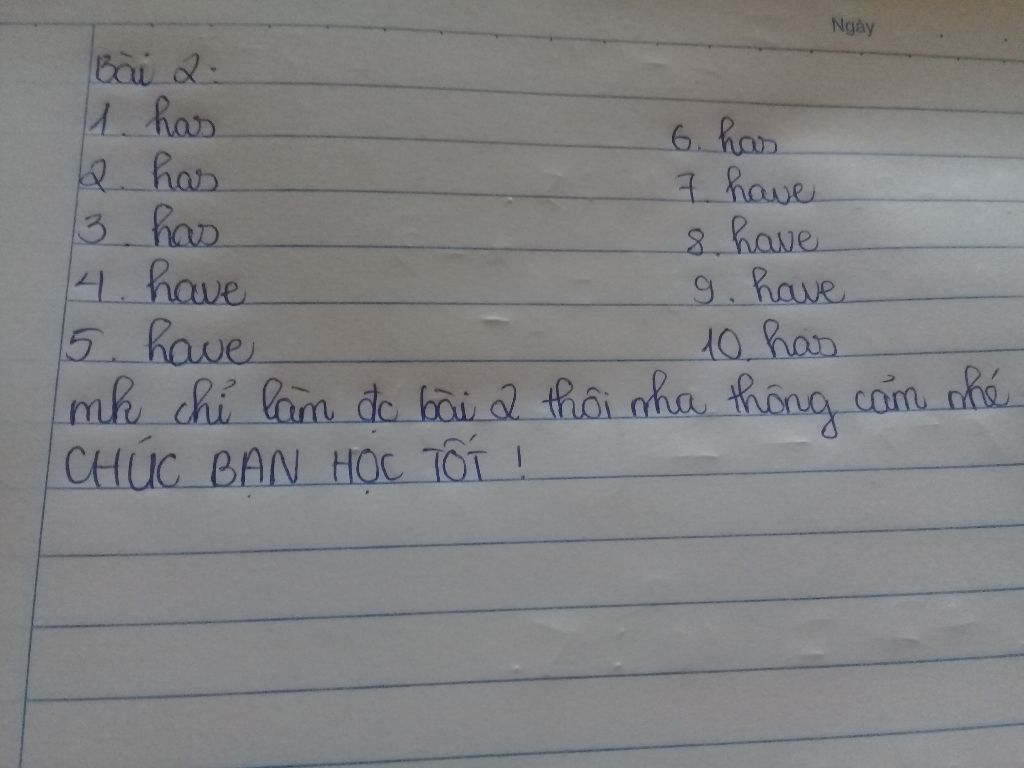 Ngày
Bài 2:
1. has
2. has
3. has
4. have
5. have
6. has
7. have
8. have
9. have
10. has
mk chỉ làm đc bài 2 thôi nha thông cảm nhé
CHÚC BẠN HỌC TỐT !